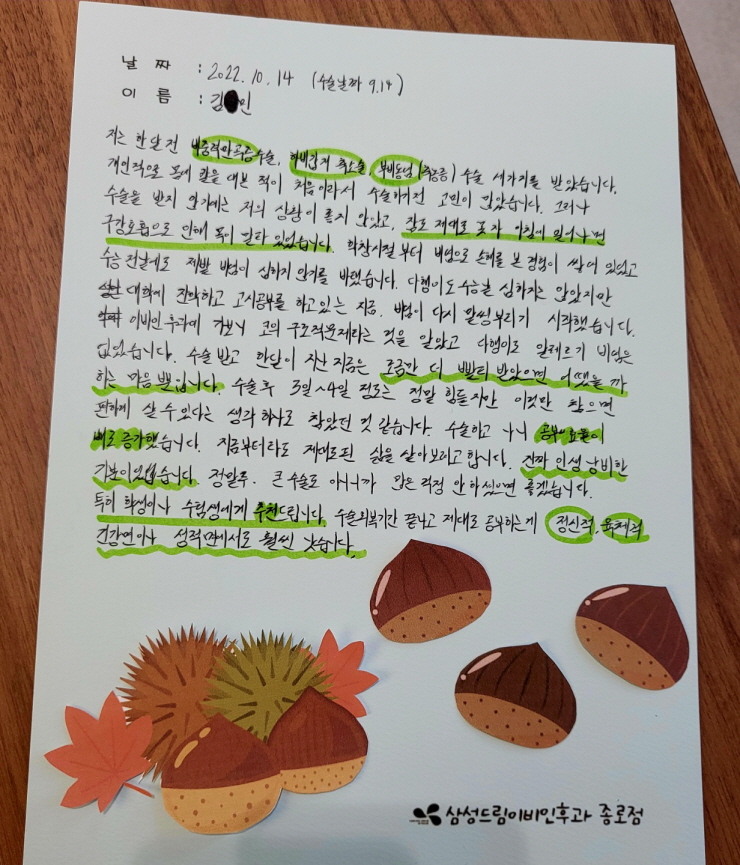 날 짜 : 2022. 10. 14 (수술날짜 9.14)
이 름 : 김 인
저는 한달 전 비중격만곡증수술, 하비갑개 축소술, 부비동염(축농증) 수술 세가지를 받았습니다.
개인적으로 몸에 칼을 대본 적이 처음이라서 수술하기전 고민이 많았습니다. 그러나
수술을 받지 않기에는 저의 상황이 좋지 않았고, 잠도 제대로 못자 아침에 일어나면
구강호흡으로 인해 목이 말라 있었습니다. 학창시절부터 비염으로 손해를 본 경험이 쌓여 있었고
수능 전날에도 제발 비염이 심하지 않기를 바랬습니다. 다행이도 수능날 심하지는 않았지만
대학에 진학하고 고시공부를 하고있는 지금. 비염이 다시 말썽부리기 시작했습니다.
이비인후과에 가보니 코의 구조적문제라는 것을 알았고 다행이도 알레르기 비염은
없었습니다. 수술 받고 한달이 지난 지금은 조금만 더 빨리 받았으면 어땠을까
하는 마음 뿐입니다. 수술 후 3일~4일 정도는 정말 힘들지만 이것만 참으면
편하게 살 수 있다는 생각 하나로 참았던 것 같습니다. 수술하고 나니 공부의 효율이
배로 증가했습니다. 지금부터라도 제대로된 삶을 살아보려고 합니다. 진짜 인생 낭비한
기분이었습니다. 정말루. 큰 수술도 아니니까 많은 걱정 안하셨으면 좋겠습니다.
특히 학생이나 수험생에게 추천드립니다. 수술회복기간 끝나고 제대로 공부하는게 정신적, 육체적
건강면이나 성적면에서도 훨씬 낫습니다.
삼성드림이비인후과 종로점